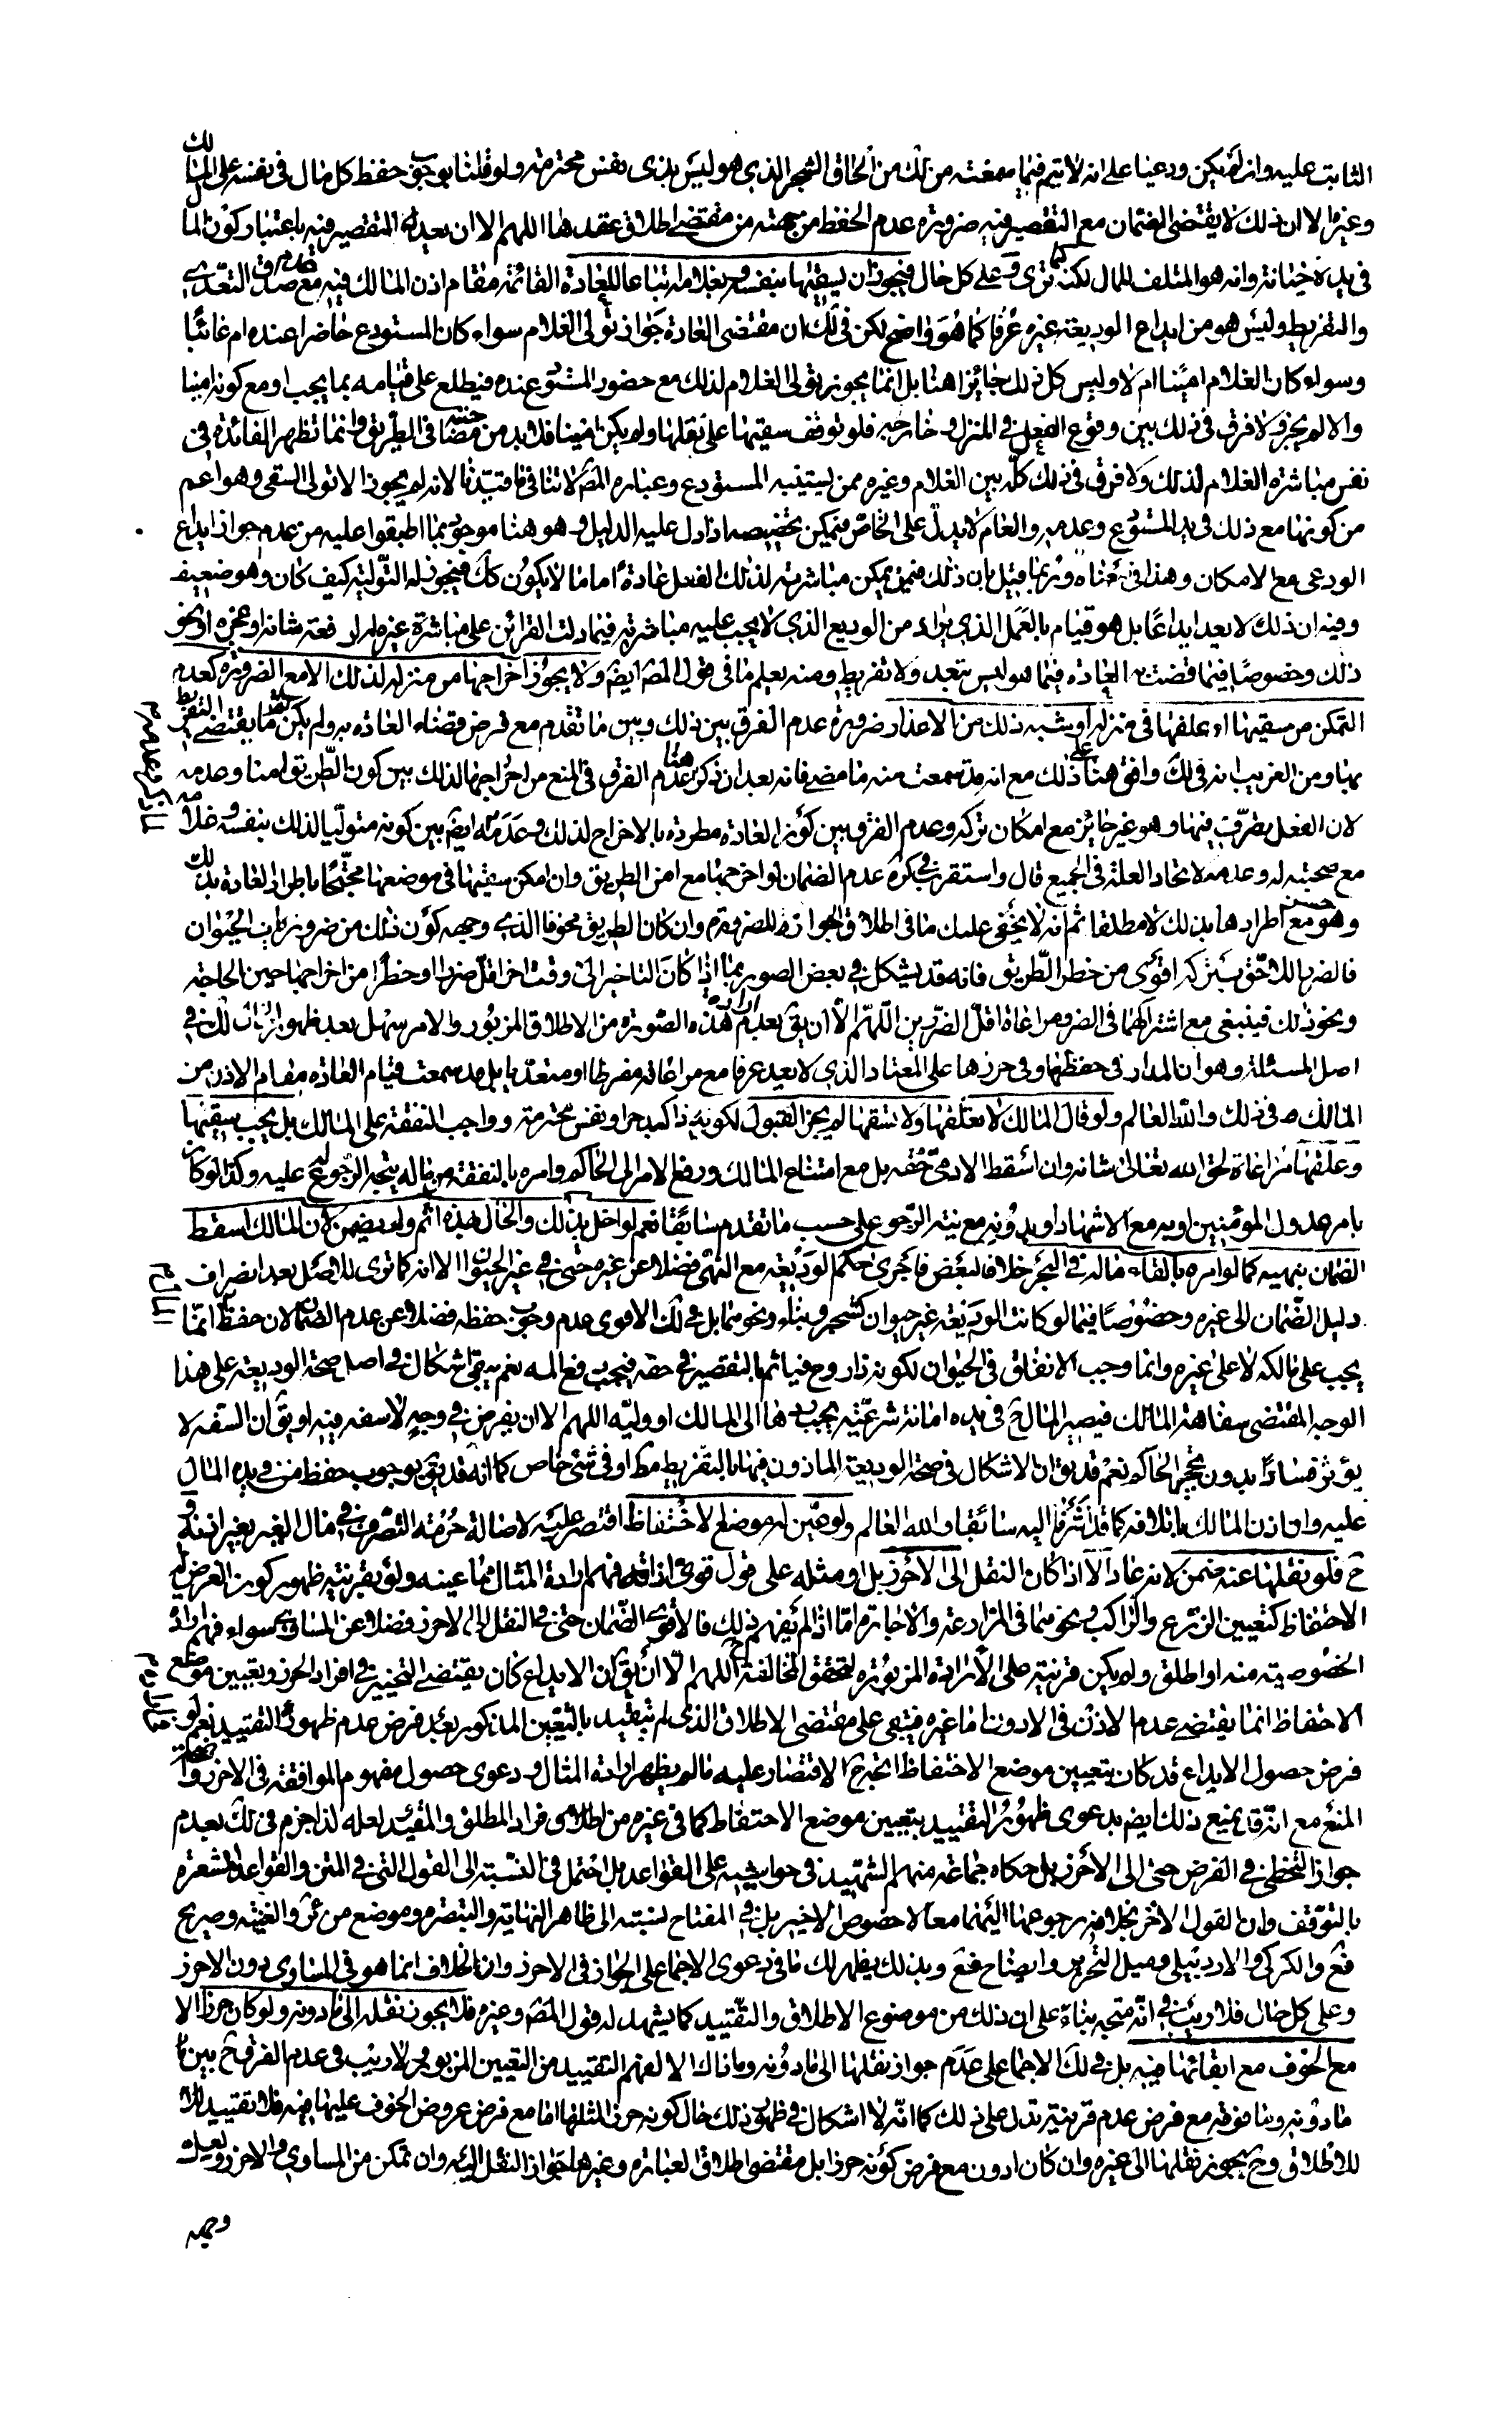 الثابت عليه وان لم يكن ودعيا على انه لا يتم فيما سمعته من لك من الحاق الشجر الذي هو ليس بذى نفس محترمة ولو قلنا بوجوب حفظ كل مال فى نفسه على المالك
وغيره الا ان ذلك لا يقتضى الضمان مع التقصير فيه ضرورة عدم الحفظ من جهته من مقتضى اطلاق عقدها اللهم الا ان يعد له التقصير فيه باعتبار كون المال
فى يده خيانة وانه هو المتلف للمال لكنه كما ترى و على كل حال فيجوز ان يسقيها بنفسه و بغلامه اتباعا للعادة القائمة مقام اذن المالك فيه مع صدق عدم التعدي
والتفريط وليس هو من ايداع الوديعة غيره عرفا كما هو واضح لكن فى لك ان مقتضى العادة جواز تولى الغلام سواء كان المستودع حاضرا عنده ام غائبا
وسواء كان الغلام امينا ام لا وليس كل ذلك جائزا هنا بل انما يجوز تولى الغلام لذلك مع حضور المستودع عنده فيطلع على قيامه بما يجب او مع كونه امينا
والا لم يجز ولا فرق فى ذلك بين وقوع الفعل فى المنزل و خارجه فلو توقف سقيها على نقلها ولم يكن امينا فلا بد من مضا حبته فى الطريق وانما تظهر الفائدة فى
نفس مباشرة الغلام لذلك ولا فرق فى ذلك كله بين الغلام وغيره ممن يستنيبه المستودع وعبارة المصَ لا تنافى ما قيّدنا لانه لم يجوز الا تولى السقى وهو اعم
من كونها مع ذلك فى يد المستودع وعدمه والعام لا يدل على الخاص فيمكن تخصيصه اذا دل عليه الدليل و هو هنا موجود بما اطبقوا عليه من عدم جواز ايداع
الودعى مع الامكان وهذا فى معناه وربما قيل بان ذلك فيمن يمكن مباشرته لذلك الفعل عادة اما ما لا يكون كك فيجوز له التولية كيف كان وهو ضعيف
وفيه ان ذلك لا يعد ايداعا بل هو قيام بالعمل الذي يراد من الوديع الذي لا يجب عليه مباشرته فيما دلت القرائن على مباشرة غيره له لرفعة شانه او عجزه او نحو
ذلك وخصوصا فيما قضت به العادة فيما هو ليس بتعد ولا تفريط ومنه يعلم ما فى قول المصَ ايضَ ولا يجوز اخراجها من منزله لذلك الا مع الضرورة كعدم
التمكن من سقيها او علفها فى منزله او يشبه ذلك من الاعذار ضرورة عدم الفرق بين ذلك وبين ما تقدم مع فرض قضاء العادة به ولم يكن ما يقتضى التفريط
بها ومن الغريب انه فى لك وافق هنا على ذلك مع انه قد سمعت منه ما مضى فانه بعد ان ذكر هنا عدم الفرق فى المنع من اخراجها لذلك بين كون الطريق امنا وعدمه
لان الفعل تصرّف فيها وهو غير جائز مع امكان تركه وعدم الفرق بين كون العادة مطردة بالاخراج لذلك و عدمه ايضَ بين كونه متوليا لذلك بنفسه و غلامه
مع صحبته له وعدمه لاتحاد العلة فى الجميع قال واستقرب فى كرة عدم الضمان لو اخرجها مع امن الطريق وان امكن سقيها فى موضعها محتجا باطراد العادة بذلك
وهو حسن مع اطرادها بذلك لا مطلقا ثم انه لا يخفى عليك ما فى اطلاق الجواز للضرورة وان كان الطريق مخوفا الذي وجهه كون ذلك من ضروريات الحيوان
فالضرر اللاحق بتركه اقوى من خطر الطريق فانه قد يشكل فى بعض الصور بما اذا كان التاخير الى وقت اخر اقل ضررا او خطرا من اخراجها حين الحاجة
ونحو ذلك فينبغى مع اشتراكهما فى الضرر مراعاة اقل الضررين اللهم الا ان يق بعدم ارادة هذه الصورة من الاطلاق المزبور والامر سهل بعد ظهور
اصل المسئلة وهو ان المدار فى حفظها وفى حرزها على المعتاد الذي لا يعد عرفا مع مراعاته مفرطا او متعديا بل قد سمعت قيام العادة مقام الاذن من
المالك فى ذلك والله العالم ولو قال المالك لا تعلفها ولا تسقها لم يجز القبول لكونه ذا كبد حرا و نفس محترمة وواجب النفقة على المالك بل يجب سقيها
وعلفها مراعاة لحق الله تعالى شانه وان اسقط الادمى حقه بل مع امتناع المالك ورفع الامر الى الحاكم وامره بالنفقة من ماله يتجه الرجوع به عليه وكذا لو كان
بامر عدول المؤمنين او به مع الاشهاد او بدونه مع نية الرجوع على حسب ما تقدم سابقا نعم لو اخل بذلك والحال هذه اثم ولم يضمن لان المالك اسقط
الضمان بنهيه كما لو امره بالقاء ماله فى البحر خلافا لبعض فاجرى حكم الوديعة مع النهى فضلا عن غيره حتى فى غير الحيوان الا انه كما ترى للاصل بعد انصراف
دليل الضمان الى غيره وخصوصا فيما لو كانت الوديعة غير حيوان كشجر وبناء ونحوهما بل فى لك الاقوى عدم وجوب حفظه فضلا عن عدم الضمان لان حفظ المال انما
يجب على مالكه لا على غيره وانما وجب الانفاق فى الحيوان لكونه ذا روح فياثم بالتقصير فى حقه فيجب دفع المه نعم يبقى اشكال فى اصل صحة الوديعة على هذا
الوجه المقتضى سفاهة المالك فيصير المال ح فى يده امانة شرعية يجب ردها الى المالك او وليه اللهم الا ان يفرض فى وجه لا سفه فيه او يق ان السفه لا
يؤثر فسادا بدون تحجير الحاكم نعم قد يق ان الاشكال فى صحة الوديعة الماذون فيها بالتفريط مط او فى شى خاص كما انه قد يق بوجوب حفظ من فى يده المال
عليه وان اذن المالك باتلافه كما قد اشرنا اليه سابقا والله العالم ولو عيّن له موضع الاحتفاظ اقتصر عليه لاصالة حرمة التصرف فى مال الغير بغير اذنه
ح فلو نقلها عنه ضمن لانه عاد الا اذا كان النقل الى الاحرز بل او مثله على قول قوى اذا فهم ارادة المثال مما عينه ولو بقرينة ظهور كون الغرض
الاحتفاظ كتعيين الزرع والراكب ونحوهما فى المزارعة والاجارة اما اذا لم يفهم ذلك فالاقوى الضمان حتى فى النقل الى الاحرز فضلا عن المساوى سواء فهم ارادة
الخصوصية منه او اطلق ولم يكن قرينة على الارادة المزبورة لتحقق المخالفة ح اللهم الا ان يق ان الايداع كان يقتضى التخيير فى افراد الحرز وتعيين موضع
الاحتفاظ انما يقتضى عدم الاذن فى الادون اما غيره فيبقى على مقتضى الاطلاق الذى لم يتقيد بالتعيين المذكور بعد فرض عدم ظهوره فى التقييد نعم لو
فرض حصول الايداع قد كان بتعيين موضع الاحتفاظ اتجه ح الاقتصار عليه ما لم يظهر ارادة المثال و دعوى حصول مفهوم الموافقة فى الاحرز واضحة
المنع مع انه قد يمنع ذلك ايضَ بدعوى ظهور التقييد بتعيين موضع الاحتفاظ كما فى غيره من اطلاق افراد المطلق والمقيد لعله لذا جزم فى لك بعدم
جواز التخطى فى الفرض حتى الى الاحرز بل حكاه جماعة منهم الشهيد فى حواشيه على القواعد بل احتمل فى النسبة الى القول التى فى المتن والقواعد المشعرة
بالتوقف وان القول الاخر بخلافه رجوعها اليهما معا لا خصوص الاخير بل فى المفتاح نسبته الى ظاهر النهاية والتبصرة وموضع من ئر والغنية وصريح
فع والكركى والاردبيلى وميل التحرير وايضاح فع وبذلك يظهر لك ما فى دعوى الاجماع على الجواز فى الاحرز وان الخلاف انما هو فى المساوى دون الاحرز
وعلى كل حال فلا ريب فى انه متجه بناء على ان ذلك من موضوع الاطلاق والتقييد كما يشهد له قول المصَ وغيره فلا يجوز نقله الى ما دونه ولو كان حرزا الا
مع الخوف مع ابقائها فيه بل فى لك الاجماع على عدم جواز نقلها الى ما دونه وما ذاك الا لفهم التقييد من التعيين المزبور ولا ريب فى عدم الفرق ح بين ما
ما دونه وما فوقه مع فرض عدم قرينة تدل على ذلك كما انه لا اشكال فى ظهور ذلك حال كونه حرزا لمثلها اما مع فرض عروض الخوف عليها فيه فلا تقييد
للاطلاق وح يجوز نقلها الى غيره وان كان ادون مع فرض كونه حرزا بل مقتضى اطلاق العبارة وغيرها جواز النقل اليه وان تمكن من المساوي والاحرز ولعل
وجهه